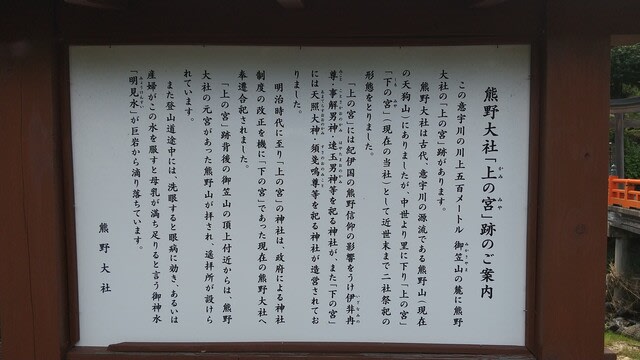 熊野大社「上の宮」跡のご案内
この意宇川の川上五百メートル 御笠山の麓に熊野
大社の「上の宮」跡があります。
熊野大社は古代、意宇川の源流である熊野山(現在
の天狗山)にありましたが、中世より里に下り「上の宮」
「下の宮」(現在の当社)として近世末まで二社祭祀の
形態をとりました。
「上の宮」には紀伊国の熊野信仰の影響をうけ伊弉冉
尊・事解男神・速玉男神等を祀る神社が、また「下の宮」
には天照大神・須受鳴尊等を祀る神社が造営されてお
りました。
明治時代に至り「上の宮」の神社は、政府による神社
制度の改正を機に「下の宮」であった現在の熊野大社へ
奉遷合祀されました。
「上の宮」跡背後の御笠山の頂上付近からは、熊野
大社の元宮があった熊野山が拝され、遥拝所が設けら
れています。
また登山道途中には、洗眼すると眼病に効き、あるいは
産婦がこの水を服すと母乳が満ち足りると言う御神水
「明見水」が巨岩から滴り落ちています。
熊野大社